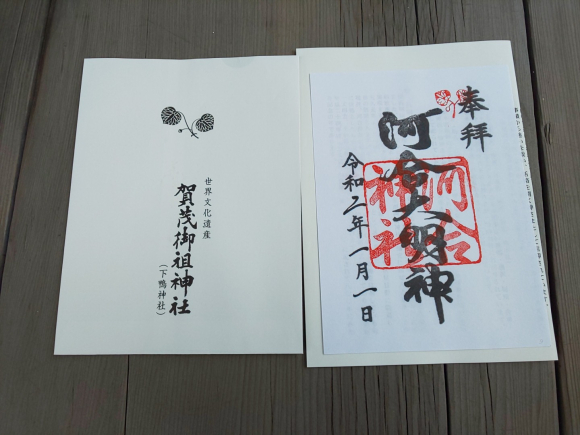 世界文化遺産
賀茂御祖神社
(下鴨神社)
奉拝
河合大明神
河合神社
令和二年一月一日